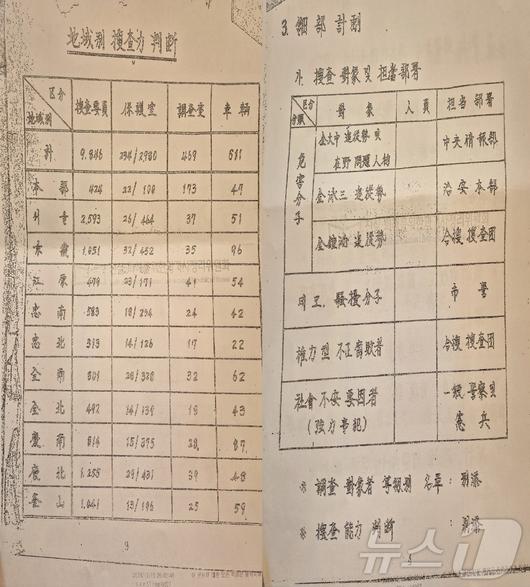 地域別 搜査力 判断
区分
地域別
搜査要員
保護室
調査室
車輌
計 9,846 234/2980 469 511
本部 424 22/108 173 47
서울 2,593 26/464 37 51
京畿 1,051 32/452 35 96
江原 479 23/171 41 54
忠南 583 18/234 24 42
忠北 313 14/126 17 22
全南 801 28/328 32 62
全北 492 14/139 18 43
慶南 814 15/395 28 87
慶北 1,255 29/431 39 48
釜山 1,041 13/196 25 59
3. 細部計劃
가. 搜査 對象 및 担當部署
区分
分類
對象
人員
担当 部署
危害分子
金大中 追從勢 및
在野 問題人物
中央情報部
金泳三 追從勢
治安本部
金鍾泌 追從勢
合搜 搜査団
同工. 騷擾分子
市警
権力型 不正腐敗者
合搜 搜査団
社會不安要因者
(強力事犯)
一般警察 및
憲兵
※ 調査 對象者 等級別 名單 : 別添
※ 搜査 能力 判断 : 別添
뉴스1